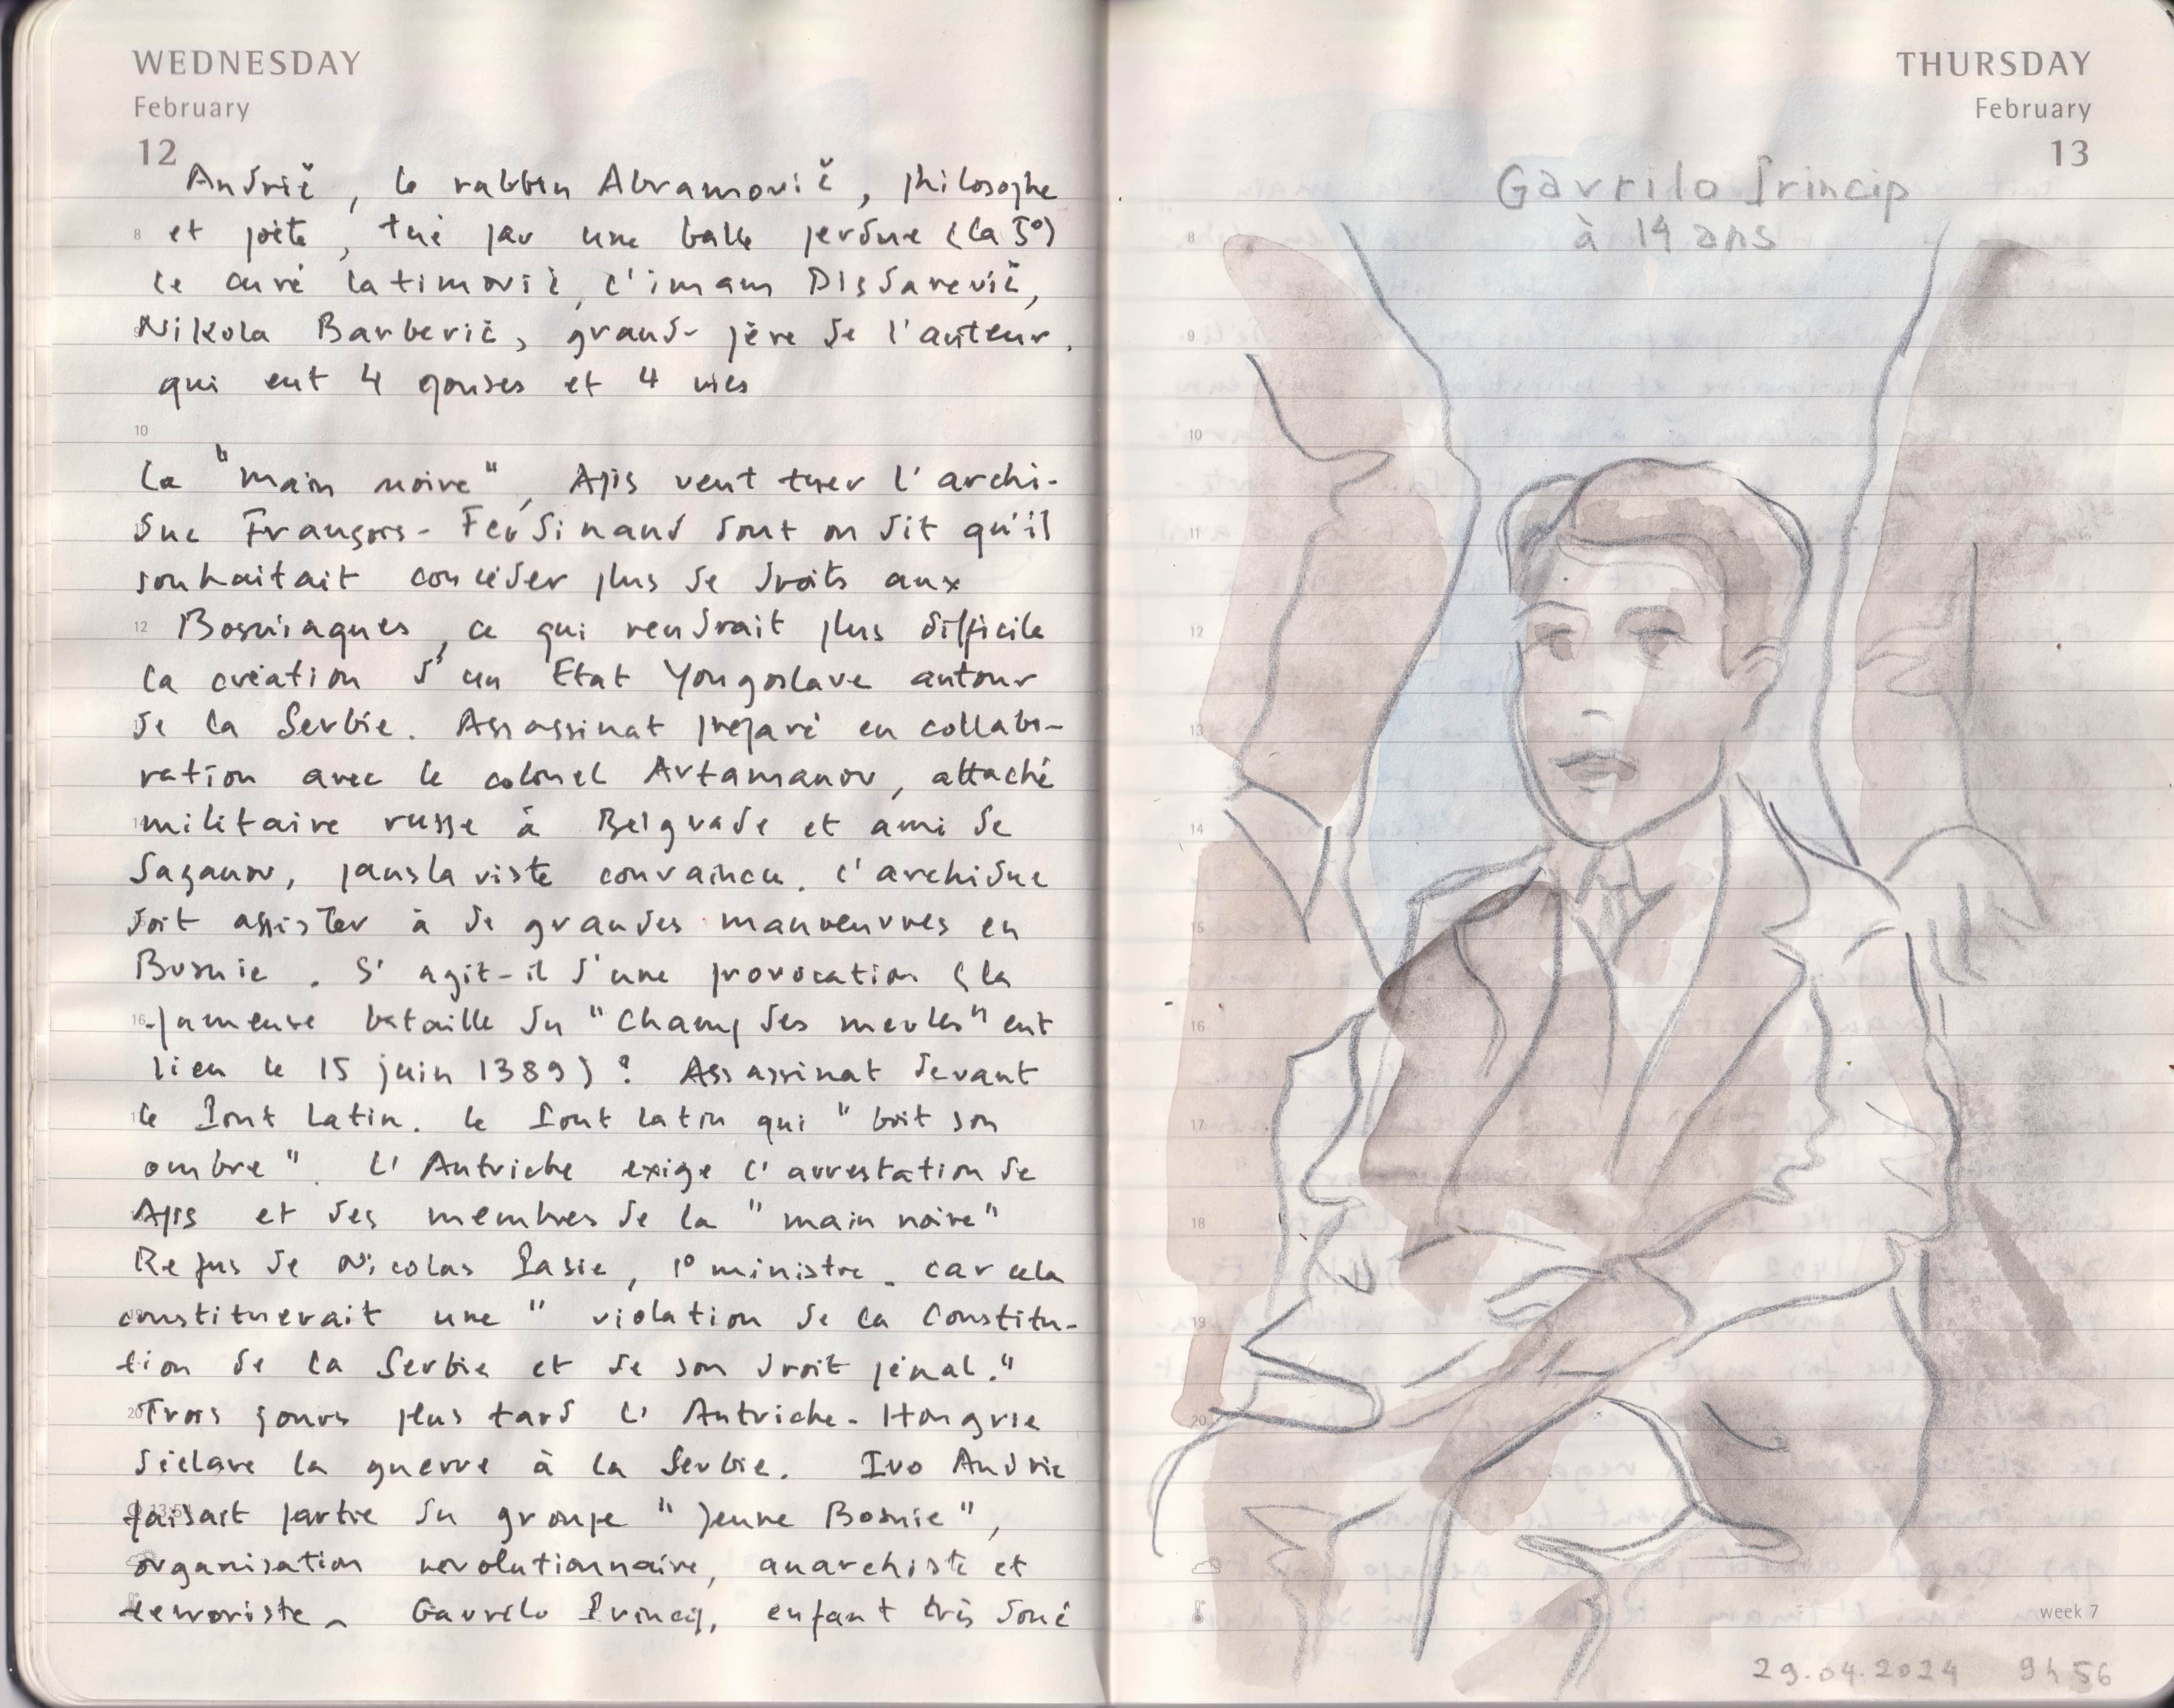 WEDNESDAY
February
12
Andrič, le rabbin Abramovič, philosophe
8 et poète, tué par une balle perdue (la 5°)
le curé latimovič, l'imam Disdarevič,
Nikola Barberič, grand-père de l'auteur.
qui eut 4 épouses et 4 vies
10
La "main noire", Apis veut tuer l'archi-
duc François-Ferdinand dont on dit qu'il
souhaitait concéder plus de droits aux
12 Bosniaques, ce qui rendrait plus difficile
la création d'un Etat Yougoslave autour
de la Serbie. Assassinat préparé en collabo-
ration avec le colonel Artamanov, attaché
militaire russe à Belgrade et ami de
Sazanov, panslaviste convaincu. L'archiduc
doit assister à de grandes manoeuvres en
Bosnie. S'agit-il d'une provocation (la
16 fameuse bataille du "Champ des merles" eut
lieu le 15 juin 1389) ? Assassinat devant
le Pont Latin. le Pont latin qui "boit son
ombre". L'Autriche exige l'arrestation de
Apis et des membres de la "main noire"
Refus de Nicolas Pasic, 1° ministre. car cela
constituerait une "violation de la Constitu-
tion de la Serbie et de son droit pénal."
20 Trois jours plus tard l'Autriche-Hongrie
déclare la guerre à la Serbie. Ivo Andric
faisait partie du groupe "Jeune Bosnie",
organisation revolutionnaire, anarchiste et
terroriste. Gavrilo Princip, enfant très doué
THURSDAY
February
13
Gavrilo Princip
à 14 ans
8
9
10
11
12
13
14
15
16
17
18
19
20
week 7
29.04.2024 9h56